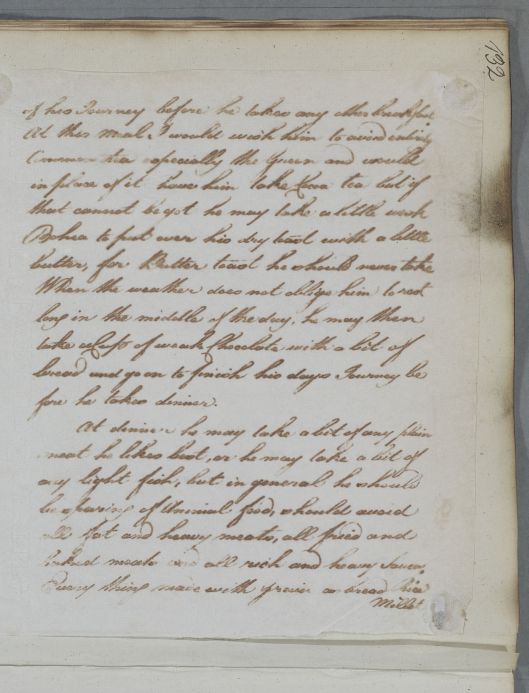 132
of his Journey before he takes any other breakfast
At this meal I would wish him to avoid entirely
Common tea especially the Green and would
in place of it have him take tea but if
that cannot be got he may take a little weak
Bohea to put over his dry toast with a little
butter, for Butter toast he should never take
When the weather does not oblige him to rest
long in the middle of the day, he may then
take a Cup of weak Chocolate with a bit of
bread and go on to finish his days Journey be
fore he takes dinner.
At dinner he may take a bit of any plain
meat he likes best, or he may take a bit of
any light fish, but in general he should
be sparing of Animal food, should avoid
all Fat and heavy meats, all fried and
baked meats and all rich and heavy Sauces,
Every thing made with grain as bread Rice
Millet